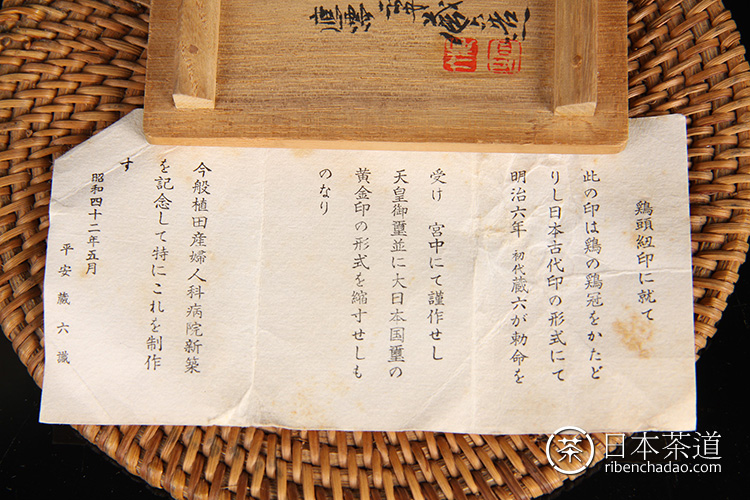 鶏頭紐印に就て
此の印は鶏の鶏冠をかたど
りし日本古代印の形式にて
明治六年 初代蔵六が勅命を
受け 宮中にて謹作せし
天皇御璽並に大日本国璽の
黄金印の形式を縮寸せしも
のなり
今般植田産婦人科病院新築
を記念して特にこれを制作
す
昭和四十二年五月
平安 蔵六識
日本茶道
ribenchadao.com
茶